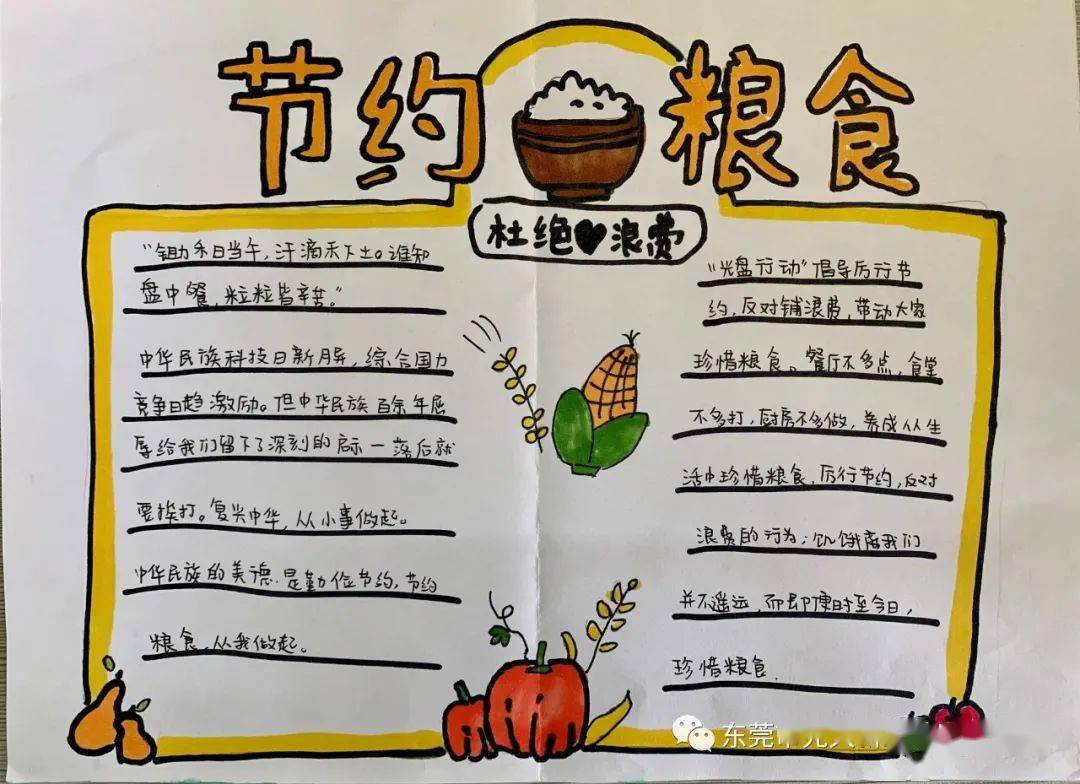 节约粮食
杜绝浪费
“锄禾日当午，汗滴禾下土。谁知
盘中餐，粒粒皆辛苦。”
中华民族科技日新月异，综合国力
竞争日趋激励。但中华民族百余年屈
辱给我们留下了深刻的启示—落后就
要挨打。复兴中华，从小事做起。
中华民族的美德.是勤位节约，节约
粮食，从我做起。
“光盘行动”倡导厉行节
约，反对铺浪费，带动大家
珍惜粮食。餐厅不多点，食堂
不多打，厨房不多做，养成从生
活中珍惜粮食，厉行节约，反对
浪费的行为；饥饿离我们
并不遥远，而即便时至今日，
珍惜粮食.
东莞市